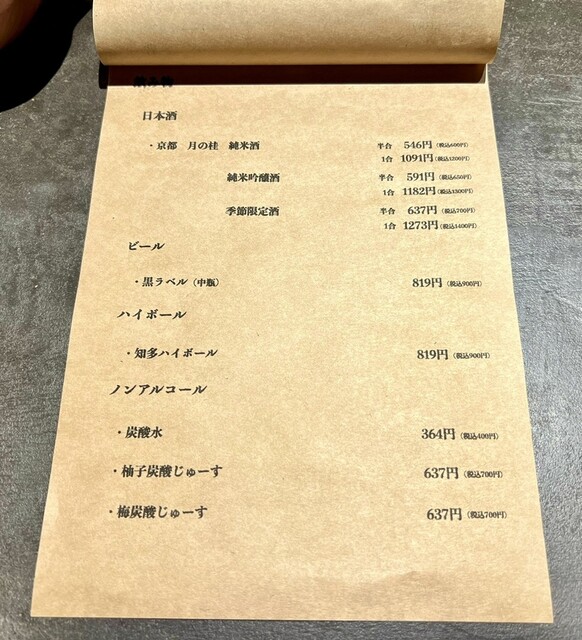 飲み物
日本酒
・京都 月の桂 純米酒 半合 546円(税込600円)
1合 1091円(税込1200円)
純米吟醸酒 半合 591円(税込650円)
1合 1182円(税込1300円)
季節限定酒 半合 637円(税込700円)
1合 1273円(税込1400円)
ビール
・黒ラベル(中瓶) 819円(税込900円)
ハイボール
・知多ハイボール 819円(税込900円)
ノンアルコール
・炭酸水 364円(税込400円)
・柚子炭酸じゅーす 637円(税込700円)
・梅炭酸じゅーす 637円(税込700円)